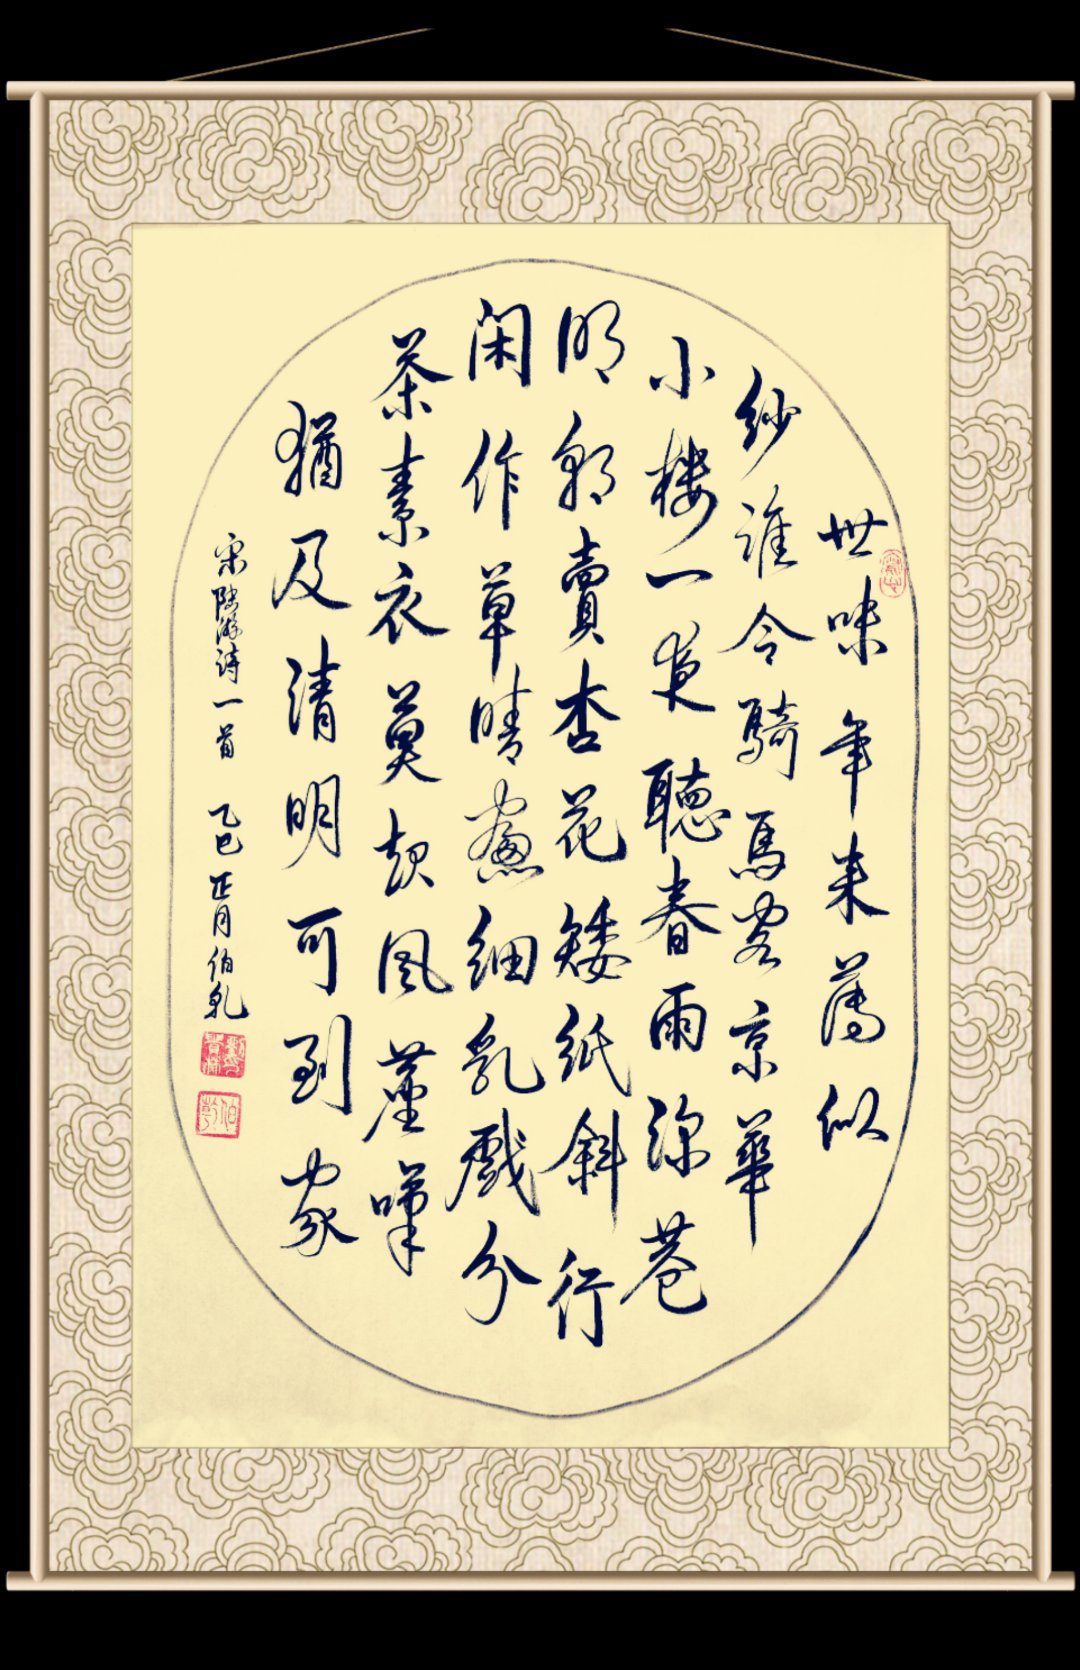 世味年来薄似
紗誰令騎馬客京華
小楼一夜聽春雨深巷
明朝賣杏花矮紙斜行
闲作草晴窻細乳戲分
茶素衣莫起風塵嘆
猶及清明可到家
宋陸游詩一首 乙巳正月伯乾
伯乾